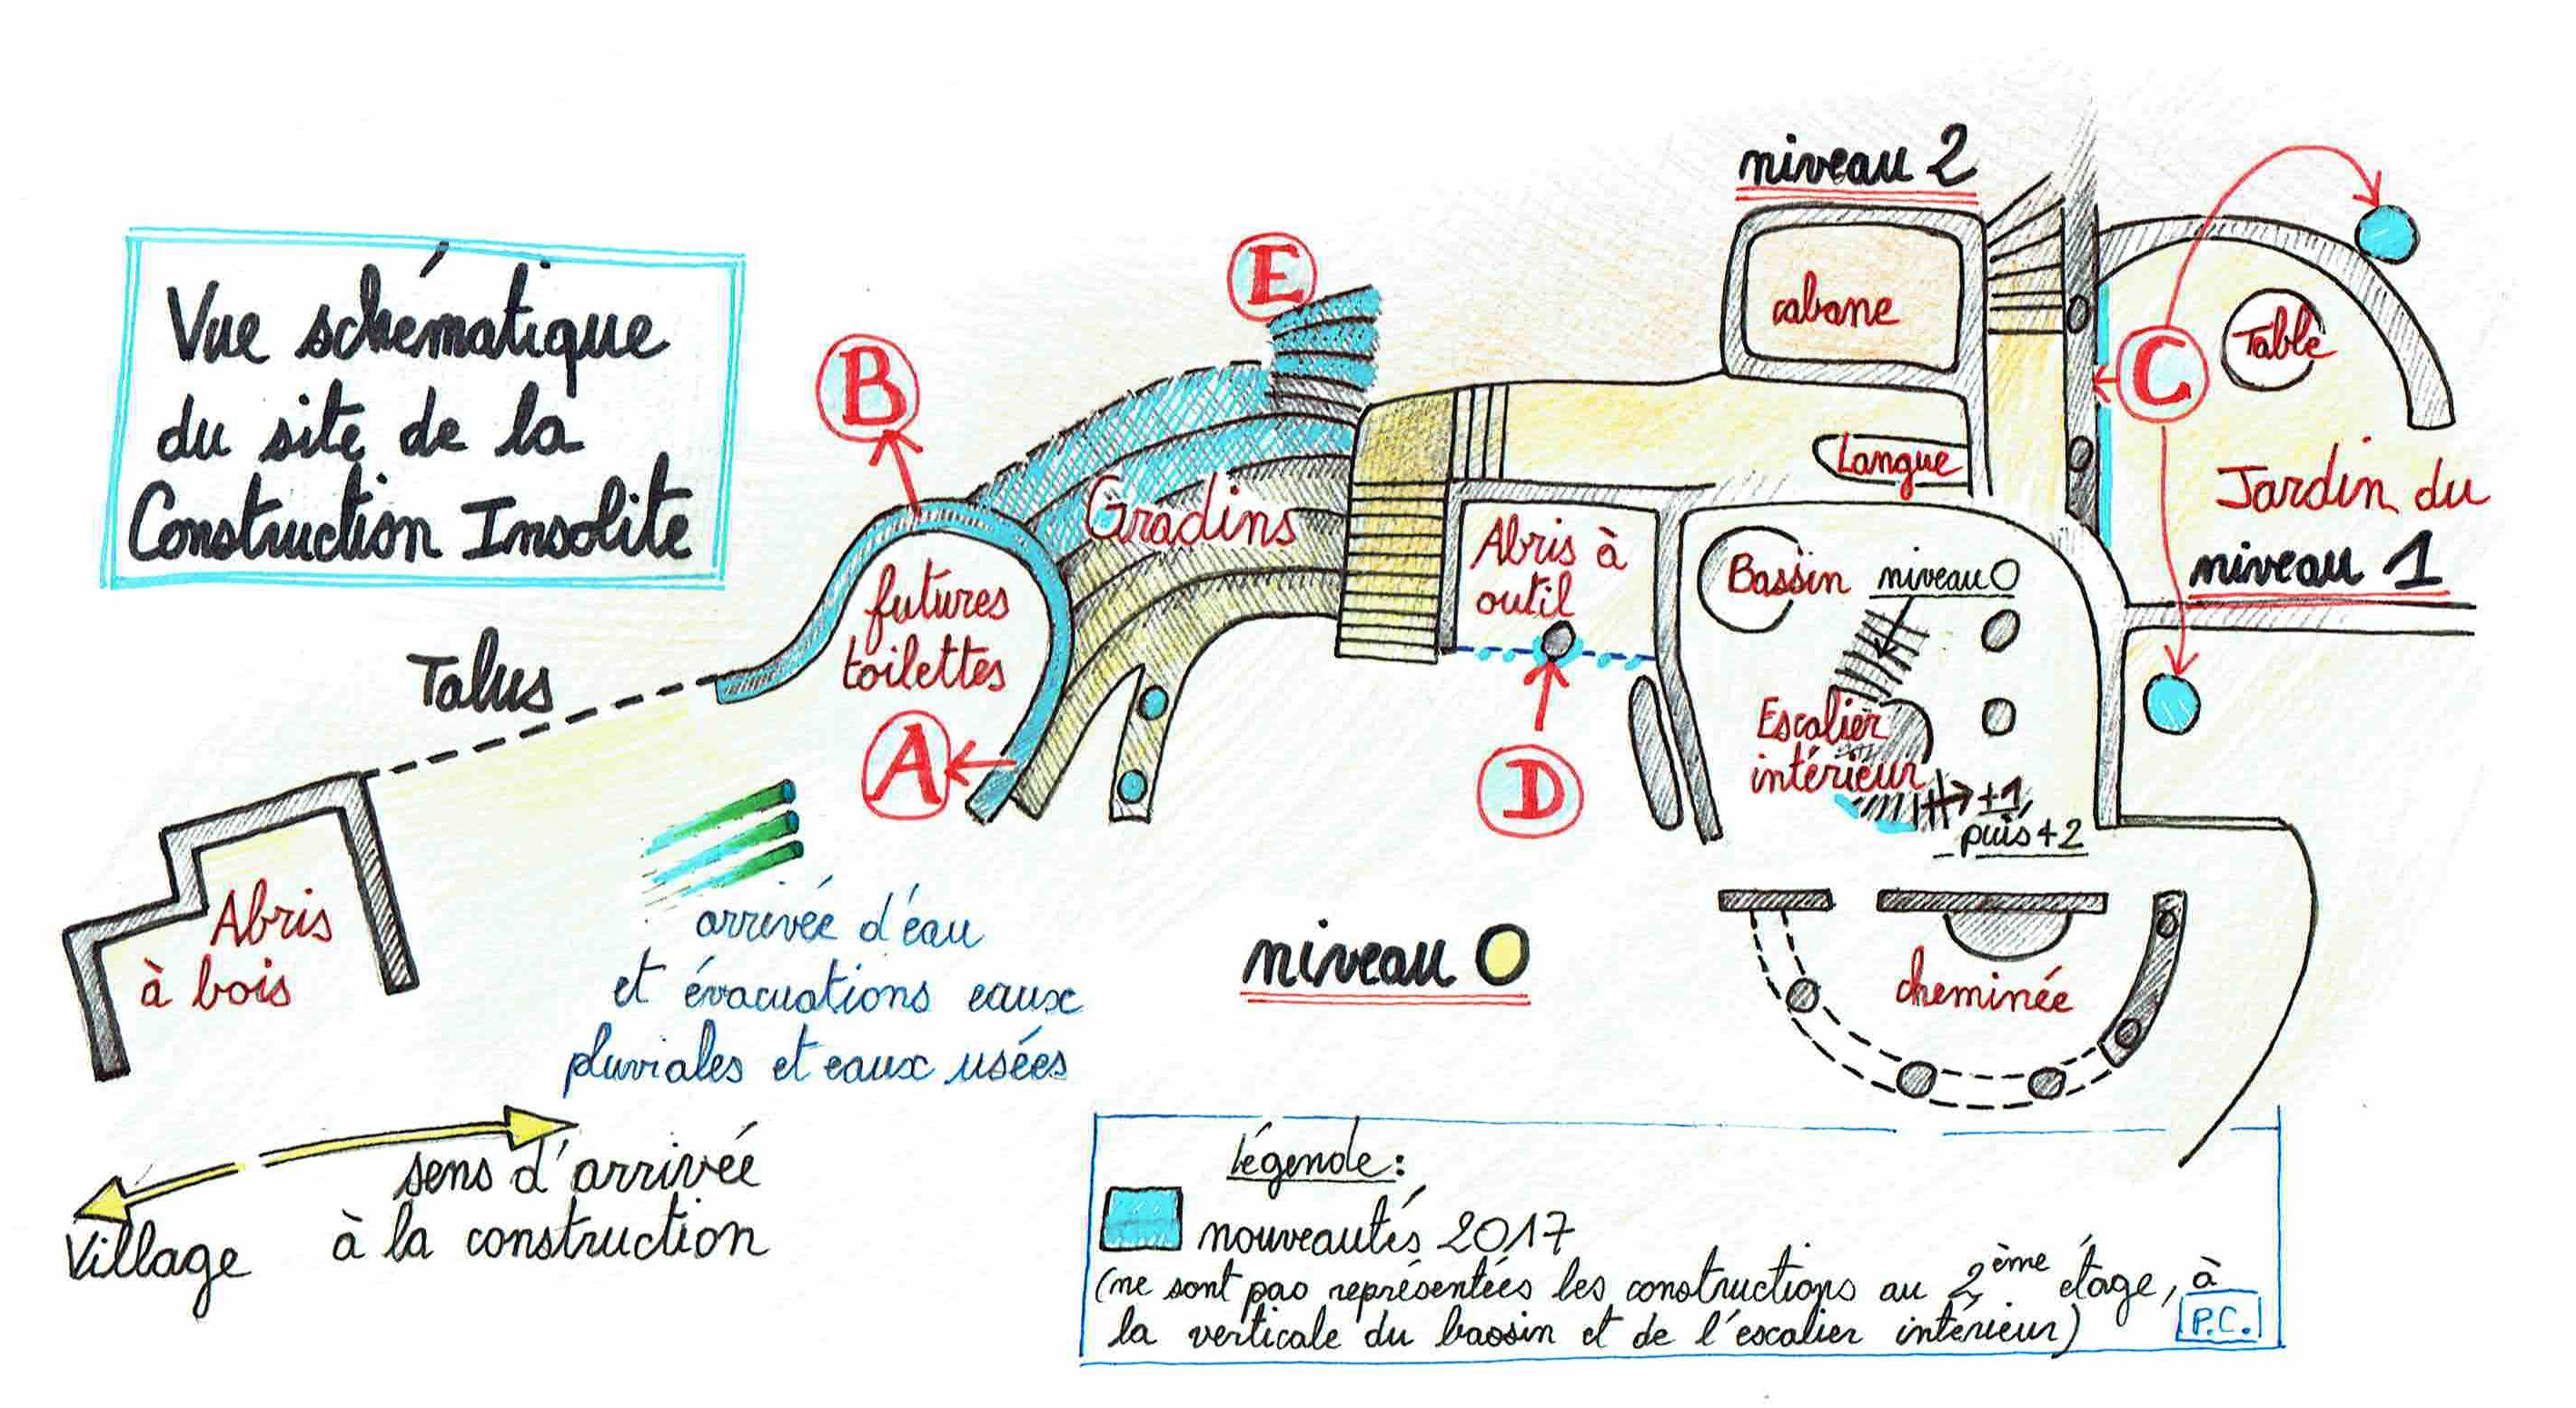 Vue schématique
du site de la
Construction Insolite
niveau 2
cabane
Langue
C
Table
Jardin du
niveau 1
E
B
Gradins
futures
toilettes
A
Abris à
outil
D
Bassin
niveau 0
Escalier
intérieur
+1
puis +2
cheminée
Talus
Abris
à bois
arrivée d'eau
et évacuations eaux
pluviales et eaux usées
niveau 0
sens d'arrivée
à la construction
Village
Légende:
nouveautés 2017
(ne sont pas représentées les constructions au 2ème étage, à
la verticale du bassin et de l'escalier intérieur)
P.C.